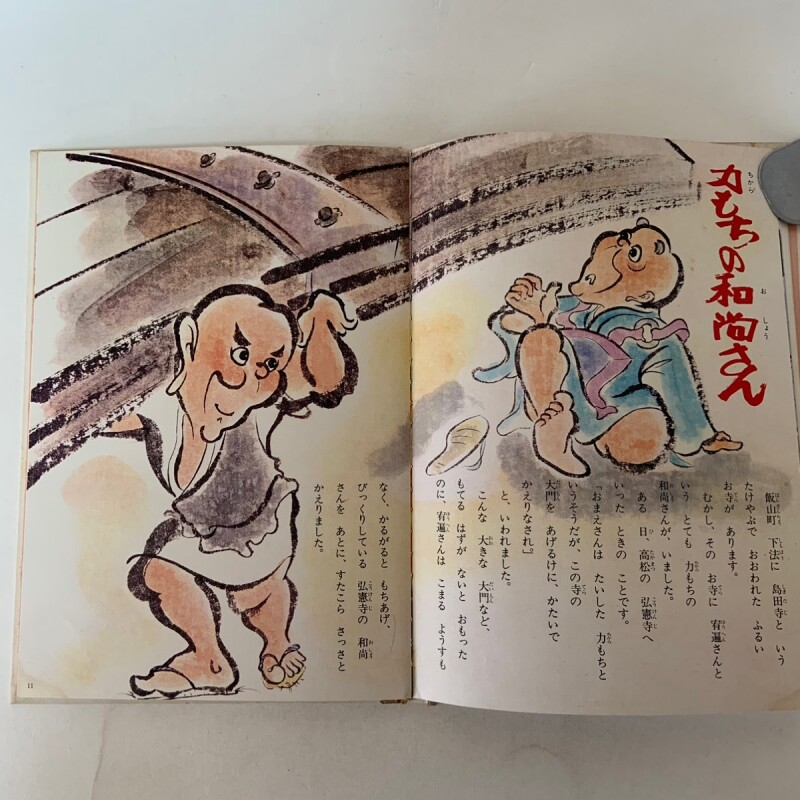 力もちの和尚さん
飯山町 下法に 島田寺と いう
たけやぶで おおわれた ふるい
お寺が あります。
むかし、その お寺に 宥遍さんと
いう とても 力もちの
和尚さんが、いました。
ある 日、高松の 弘憲寺へ
いった ときの ことです。
「おまえさんは たいした 力もちと
いうそうだが、この寺の
大門を あげるけに、かたいで
かえりなされ。」
と、いわれました。
こんな 大きな 大門など、
もてる はずが ないと おもった
のに、宥遍さんは こまる ようすも
なく、かるがると もちあげ、
びっくりしている 弘憲寺の 和尚
さんを あとに、すたこら さっさと
かえりました。
11